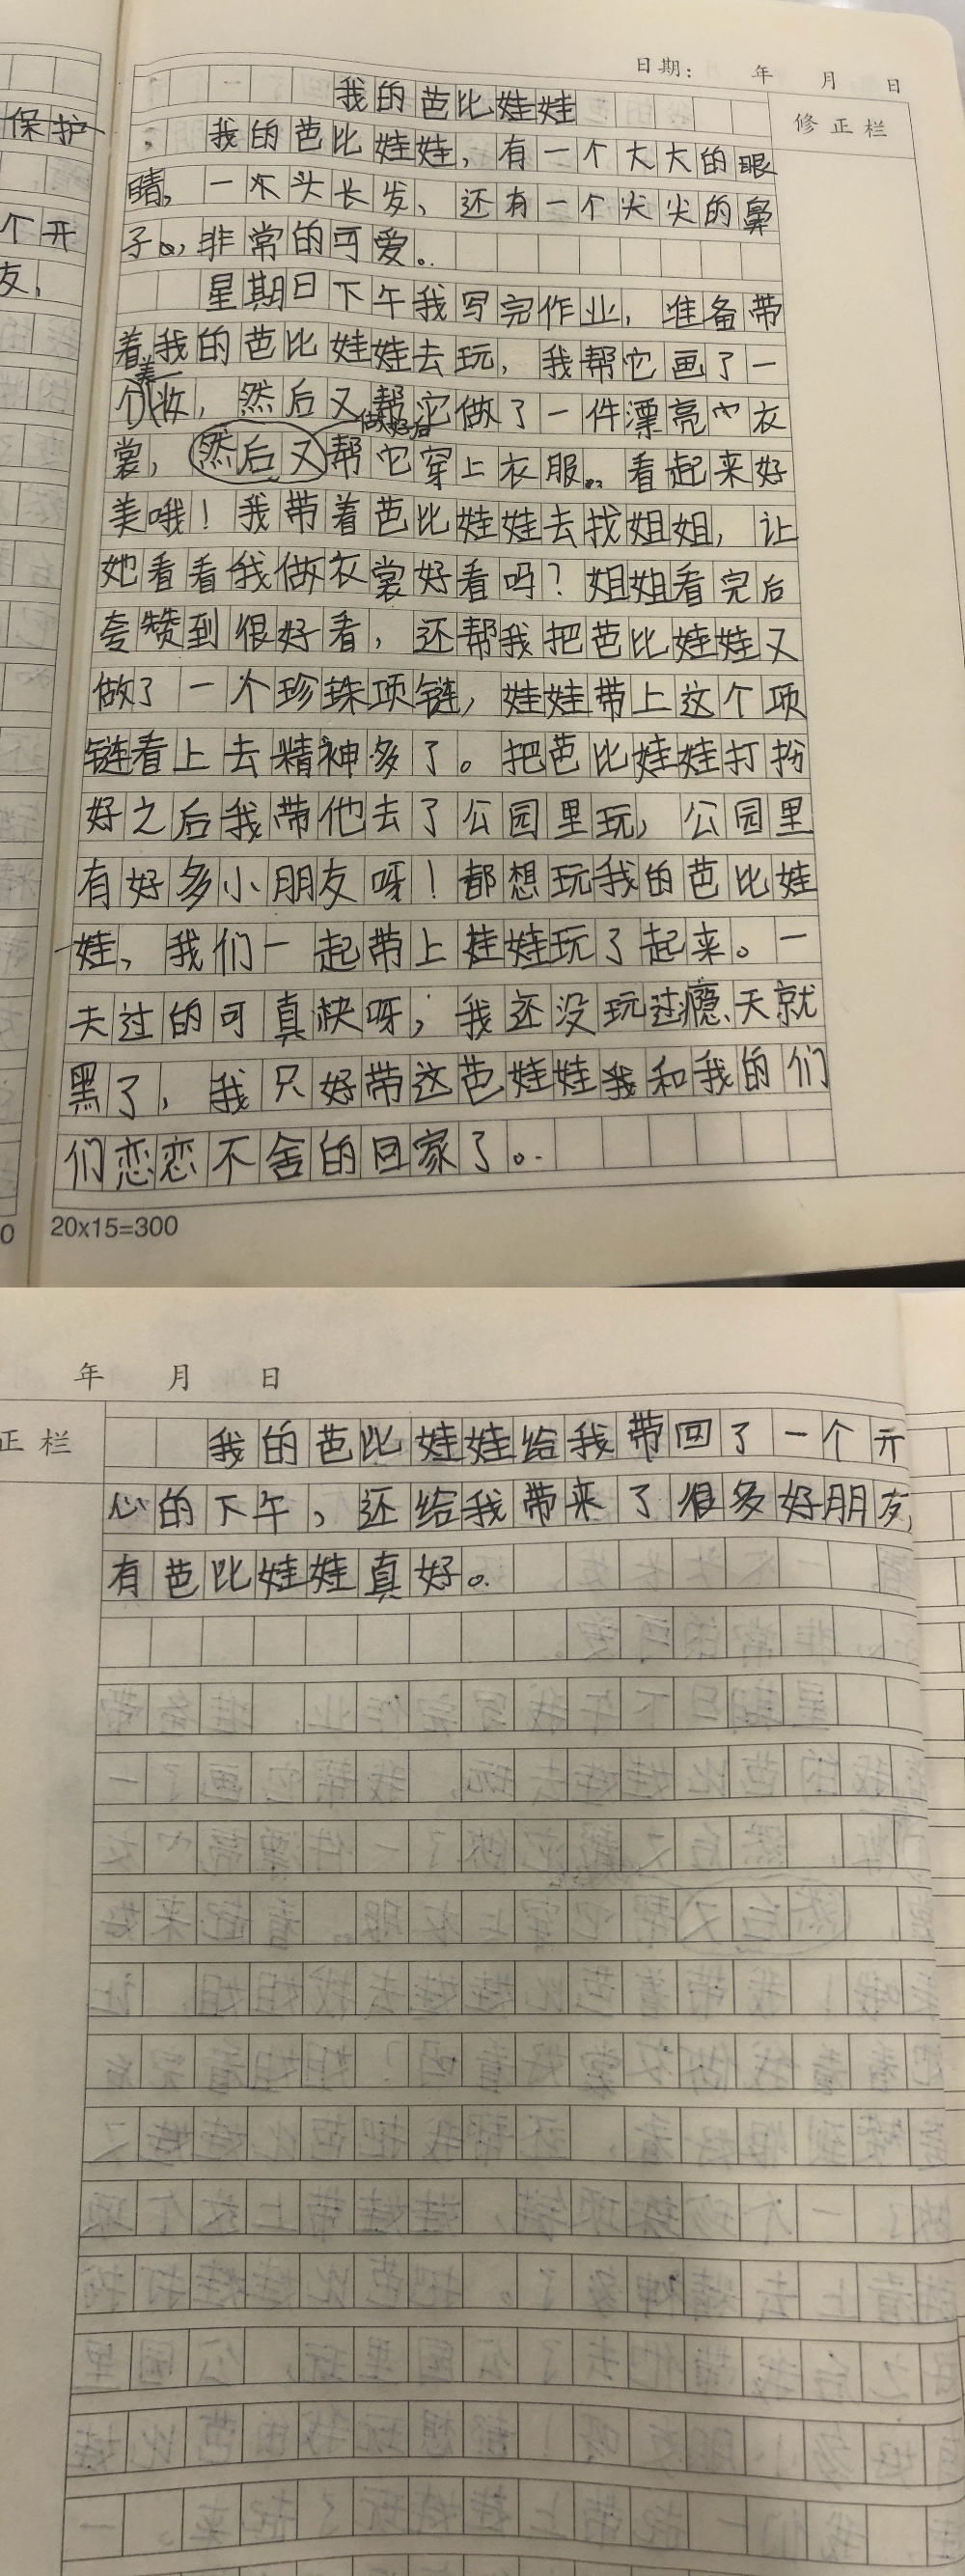 日期： 年 月 日
修正栏
保护
个开
友，
我的芭比娃娃
我的芭比娃娃，有一个大大的眼
睛，一个头长发、还有一个尖尖的鼻
子。，非常的可爱。
星期日下午我写完作业，准备带
着我的芭比娃娃去玩，我帮它画了一
个美妆，然后又帮它做了一件漂亮的衣
裳，然后又做好后帮它穿上衣服。看起来好
美哦！我带着芭比娃娃去找姐姐，让
她看看我做衣裳好看吗？姐姐看完后
夸赞到很好看，还帮我把芭比娃娃又
做了一个珍珠项链，娃娃带上这个项
链看上去精神多了。把芭比娃娃打扮
好之后我带他去了公园里玩，公园里
有好多小朋友呀！都想玩我的芭比娃
娃，我们一起带上娃娃玩了起来。一
天过的可真快呀，我还没玩过瘾、天就
黑了，我只好带这芭娃娃我和我的们
们恋恋不舍的回家了。
20x15=300
0
年 月 日
正栏
我的芭比娃娃给我带回了一个开
心的下午，还给我带来了很多好朋友，
有芭比娃娃真好。